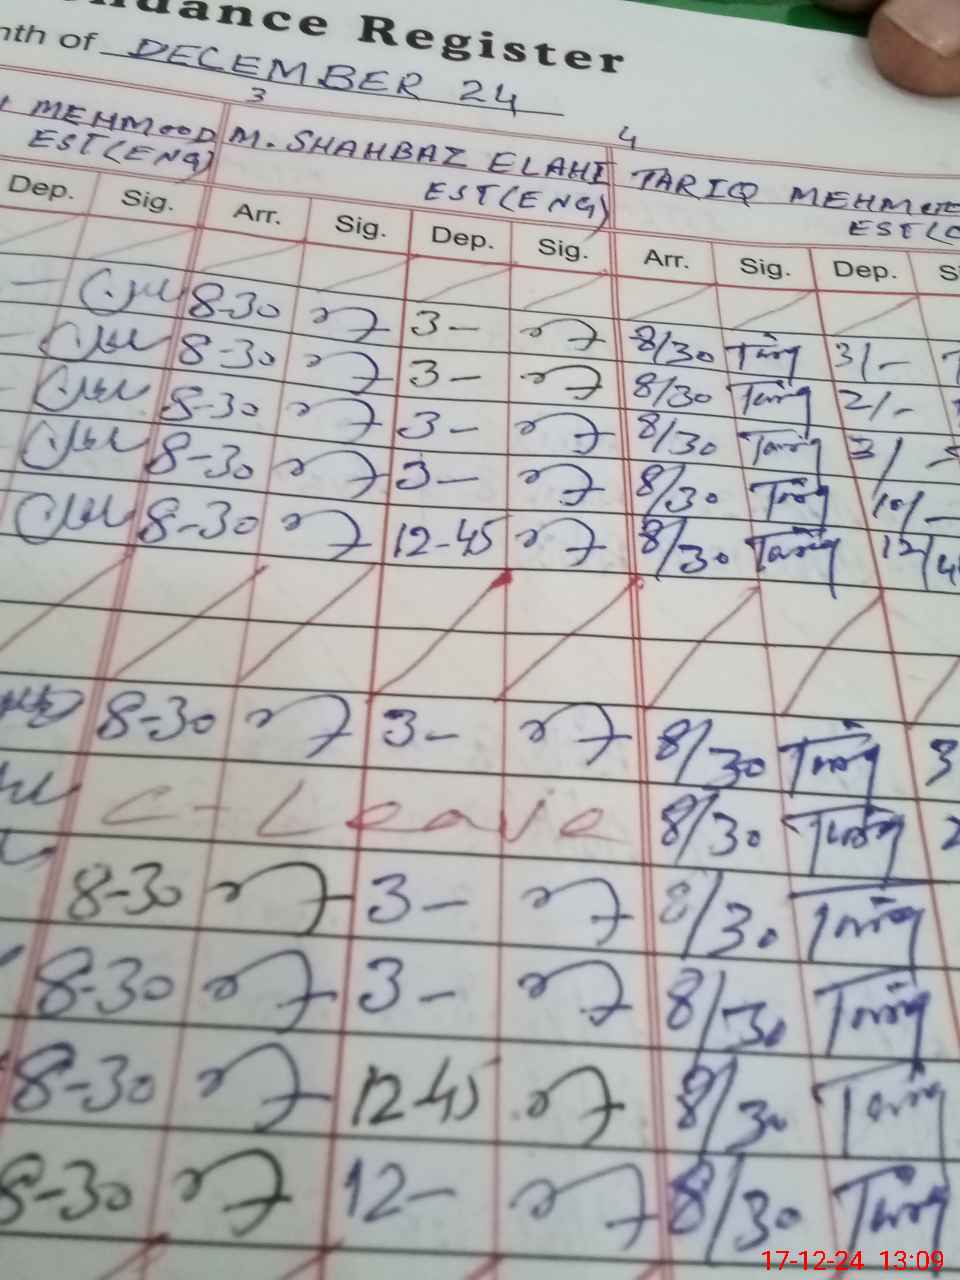 dance Register
nth of DECEMBER 24
3 4
MEHMOOD M. SHAHBAZ ELAHI TARIQ MEHM
EST(ENG) EST(ENG) EST(
Dep. Sig. Arr. Sig. Dep. Sig. Arr. Sig. Dep. S
8-30 3- 8/30 Tariq 3/-
8-30 3- 8/30 Tariq 2/-
8-30 3- 8/30 Tariq 3/
8-30 3- 8/30 Tariq 10/-
8-30 12-45 8/30 Tariq 12/4
8-30 3- 8/30 Tariq 3
C-Leave 8/30 Tariq 2
8-30 3- 8/30 Tariq
8-30 3- 8/30 Tariq
8-30 12-45 8/30 Tariq
8-30 12- 8/30 Tariq
17-12-24 13:09